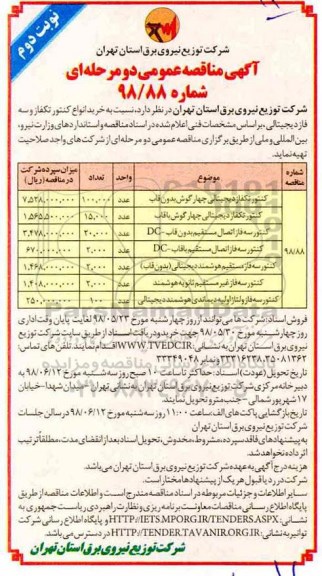 نوبت دوم
شرکت توزیع نیروی برق استان تهران
آگهی مناقصه عمومی دو مرحله‌ای
شماره ۹۸/۸۸
شرکت توزیع نیروی برق استان تهران در نظر دارد، نسبت به خرید انواع کنتور تکفاز و سه
فاز دیجیتالی، براساس مشخصات فنی اعلام شده در اسناد مناقصه و استانداردهای وزارت نیرو،
بین‌المللی و ملی از طریق برگزاری مناقصه عمومی دو مرحله‌ای از شرکت‌های واجد صلاحیت
تهیه نماید.
شماره مناقصه موضوع واحد تعداد میزان سپرده شرکت در مناقصه (ریال)
۹۸/۸۸
کنتور تکفاز دیجیتالی چهار گوش بدون قاب عدد ۱۰۰,۰۰۰ ۷,۵۲۸,۰۰۰,۰۰۰
کنتور تکفاز دیجیتالی چهار گوش با قاب عدد ۱۵,۰۰۰ ۱,۵۶۵,۵۰۰,۰۰۰
کنتور سه فاز اتصال مستقیم بدون قاب -DC عدد ۲۰,۰۰۰ ۳,۴۷۸,۰۰۰,۰۰۰
کنتور سه فاز اتصال مستقیم با قاب -DC عدد ۲,۰۰۰ ۶۷۰,۰۰۰,۰۰۰
کنتور سه فاز مستقیم هوشمند دیجیتالی (بدون قاب) عدد ۲,۰۰۰ ۱,۴۶۸,۰۰۰,۰۰۰
کنتور سه فاز غیر مستقیم ثانویه هوشمند عدد ۲,۰۰۰ ۱,۴۰۸,۰۰۰,۰۰۰
کنتور سه فاز ولتاژ اولیه دیماندی هوشمند دیجیتالی عدد ۱۰۰ ۲۵۰,۰۰۰,۰۰۰
فروش اسناد: شرکت‌ها می‌توانند از روز چهارشنبه مورخ ۹۸/۰۵/۲۳ لغایت پایان وقت اداری
روز چهارشنبه مورخ ۹۸/۰۵/۳۰ جهت خرید و دریافت اسناد از طریق سایت شرکت توزیع
نیروی برق استان تهران به نشانی: WWW.TVEDC.IR اقدام نمایند. تلفن‌های تماس:
تاریخ تحویل (عودت) اسناد: حداکثر تا ساعت ۱۰ صبح روز سه‌شنبه مورخ ۹۸/۰۶/۱۲ به
دبیرخانه مرکزی شرکت توزیع نیروی برق استان تهران به نشانی: تهران - میدان شهدا - خیابان
۱۷ شهریور شمالی - جنب مترو تحویل نمایند.
تاریخ بازگشایی پاکت‌های الف: ساعت ۱۱:۰۰ روز سه‌شنبه مورخ ۹۸/۰۶/۱۲ در سالن جلسات
به پیشنهادهای فاقد سپرده، مشروط، مخدوش، تحویل اسناد بعد از انقضای مدت، مطلقاً ترتیب
اثر داده نخواهد شد.
هزینه درج آگهی به عهده شرکت توزیع نیروی برق استان تهران می‌باشد.
شرکت در رد یا قبول هر یک از پیشنهادها مختار است.
سایر اطلاعات و جزئیات مربوطه در اسناد مناقصه مندرج است و اطلاعات مناقصه از طریق
پایگاه اطلاع رسانی مناقصات معاونت برنامه ریزی و نظارت راهبردی ریاست جمهوری به
نشانی: HTTP://IETS.MPORG.IR/TENDERS.ASPX و پایگاه اطلاع رسانی شرکت
توانیر به نشانی: HTTP://TENDER.TAVANIR.ORG.IR در دسترس می‌باشد.
شرکت توزیع نیروی برق استان تهران